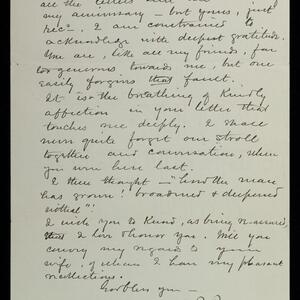 all the letters
my anniversary — but yours, just
rec'd. I am constrained to
acknowledge with deepest gratitude.
You are, like all my friends, far
too generous towards me, but one
easily forgives that fault.
It is the breathing of kindly
affection in your letter that
touches me deeply. I shall
never quite forget our stroll
together and conversation, when
you were here last.
I then thought — "how the man
has grown! broadened & deepened
withal"!
I wish you to know, as being assured,
I love & honor you. Will you
convey my regards to your
wife, of whom I have pleasant
recollections.
God bless you —